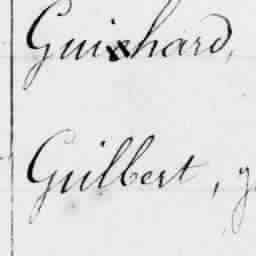 Guichard,
Guilbert,